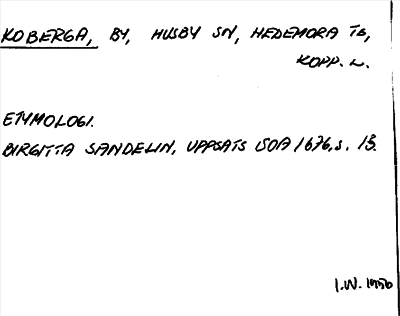 KOBERGA, BY, HUSBY SN, HEDEMORA TG,
KOPP. L.
ETYMOLOGI.
BIRGITTA SANDELIN, UPPSATS SOA 1676, s. 13.
I.W. 1950